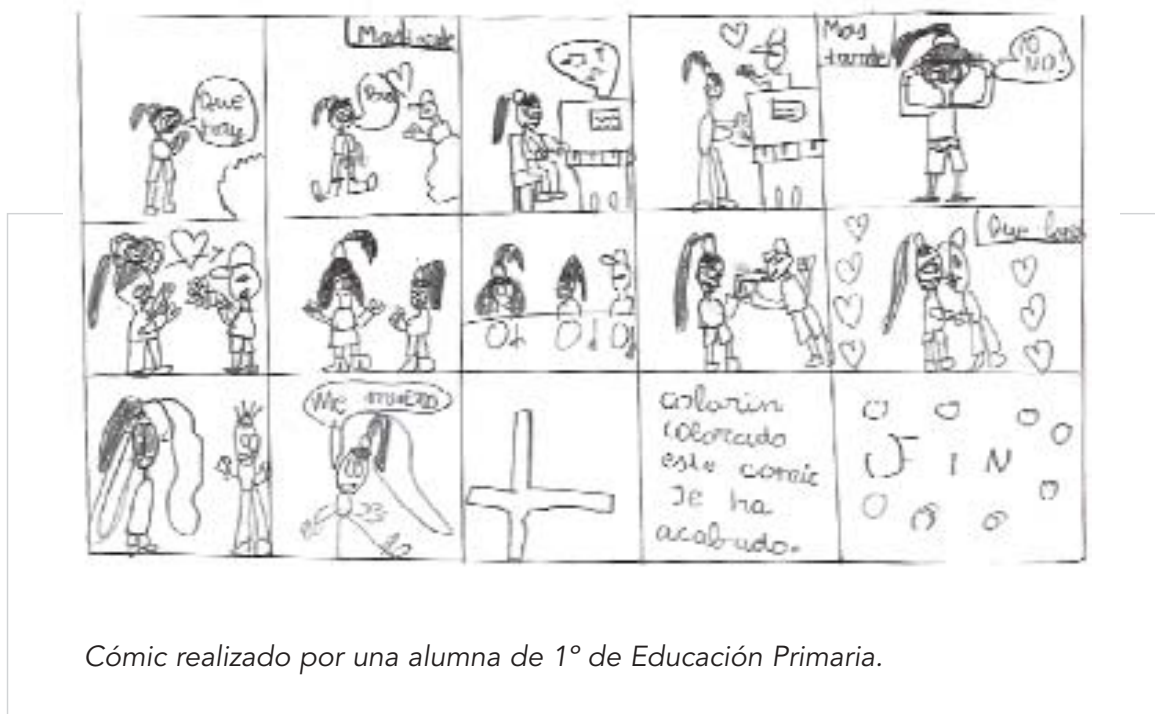 Que
Mas
tarde
YO
NO!
Que
Me muero
colorin
colorado
este comic
se ha
acabado.
FIN
Cómic realizado por una alumna de 1º de Educación Primaria.